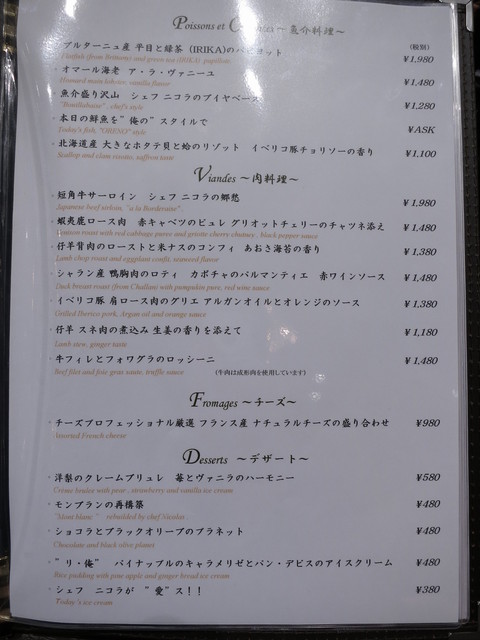 Poissons et ～魚介料理～
(税別)
ブルターニュ産 平目と緑茶 (IRIKA)のパピヨット ¥1,980
Flatfish (from Brittany) and green tea (IRIKA) papillote
オマール海老 ア・ラ・ヴァニーユ ¥1,480
lobster, vanilla flavor
魚介盛り沢山 シェフ ニコラのブイヤベース ¥1,280
"Bouillabaisse", chef's style
本日の鮮魚を"俺の"スタイルで ¥ASK
Today's fish, "ORENO" style
北海道産 大きなホタテ貝と蛤のリゾット イベリコ豚チョリソーの香り ¥1,100
Scallop and clam risotto, saffron taste
Viandes ～肉料理～
短角牛サーロイン シェフ ニコラの郷愁 ¥1,980
Japanese beef sirloin, "a la Bordelaise"
蝦夷鹿ロース肉 赤キャベツのピュレ グリオットチェリーのチャツネ添え ¥1,480
Venison roast with red cabbage puree and griotte cherry chutney, black pepper sauce
仔羊背肉のローストと米ナスのコンフィ あおさ海苔の香り ¥1,380
Lamb chop roast and eggplant confit, seaweed flavor
シャラン産 鴨胸肉のロティ カボチャのパルマンティエ 赤ワインソース ¥1,480
Duck breast roast (from Challans) with pumpukin pure, red wine sauce
イベリコ豚 肩ロース肉のグリエ アルガンオイルとオレンジのソース ¥1,380
Grilled Iberico pork, Argan oil and orange sauce
仔羊 スネ肉の煮込み 生姜の香りを添えて ¥1,180
Lamb stew, ginger taste
牛フィレとフォワグラのロッシーニ ¥1,480
Beef filet and foie gras saute, truffle sauce (牛肉は成形肉を使用しています)
Fromages ～チーズ～
チーズプロフェッショナル厳選 フランス産 ナチュラルチーズの盛り合わせ ¥980
Assorted French cheese
Desserts ～デザート～
洋梨のクレームブリュレ 苺とヴァニラのハーモニー ¥580
Crème brulee with pear, strawberry and vanilla ice cream
モンブランの再構築 ¥480
"Mont blanc" rebuilded by chef Nicolas
ショコラとブラックオリーブのプラネット ¥480
Chocolate and black olive planet
"リ・俺" パイナップルのキャラメリゼとパン・デピスのアイスクリーム ¥480
Rice pudding with pine apple and ginger bread ice cream
シェフ ニコラが "愛"ス！！ ¥380
Today's ice cream